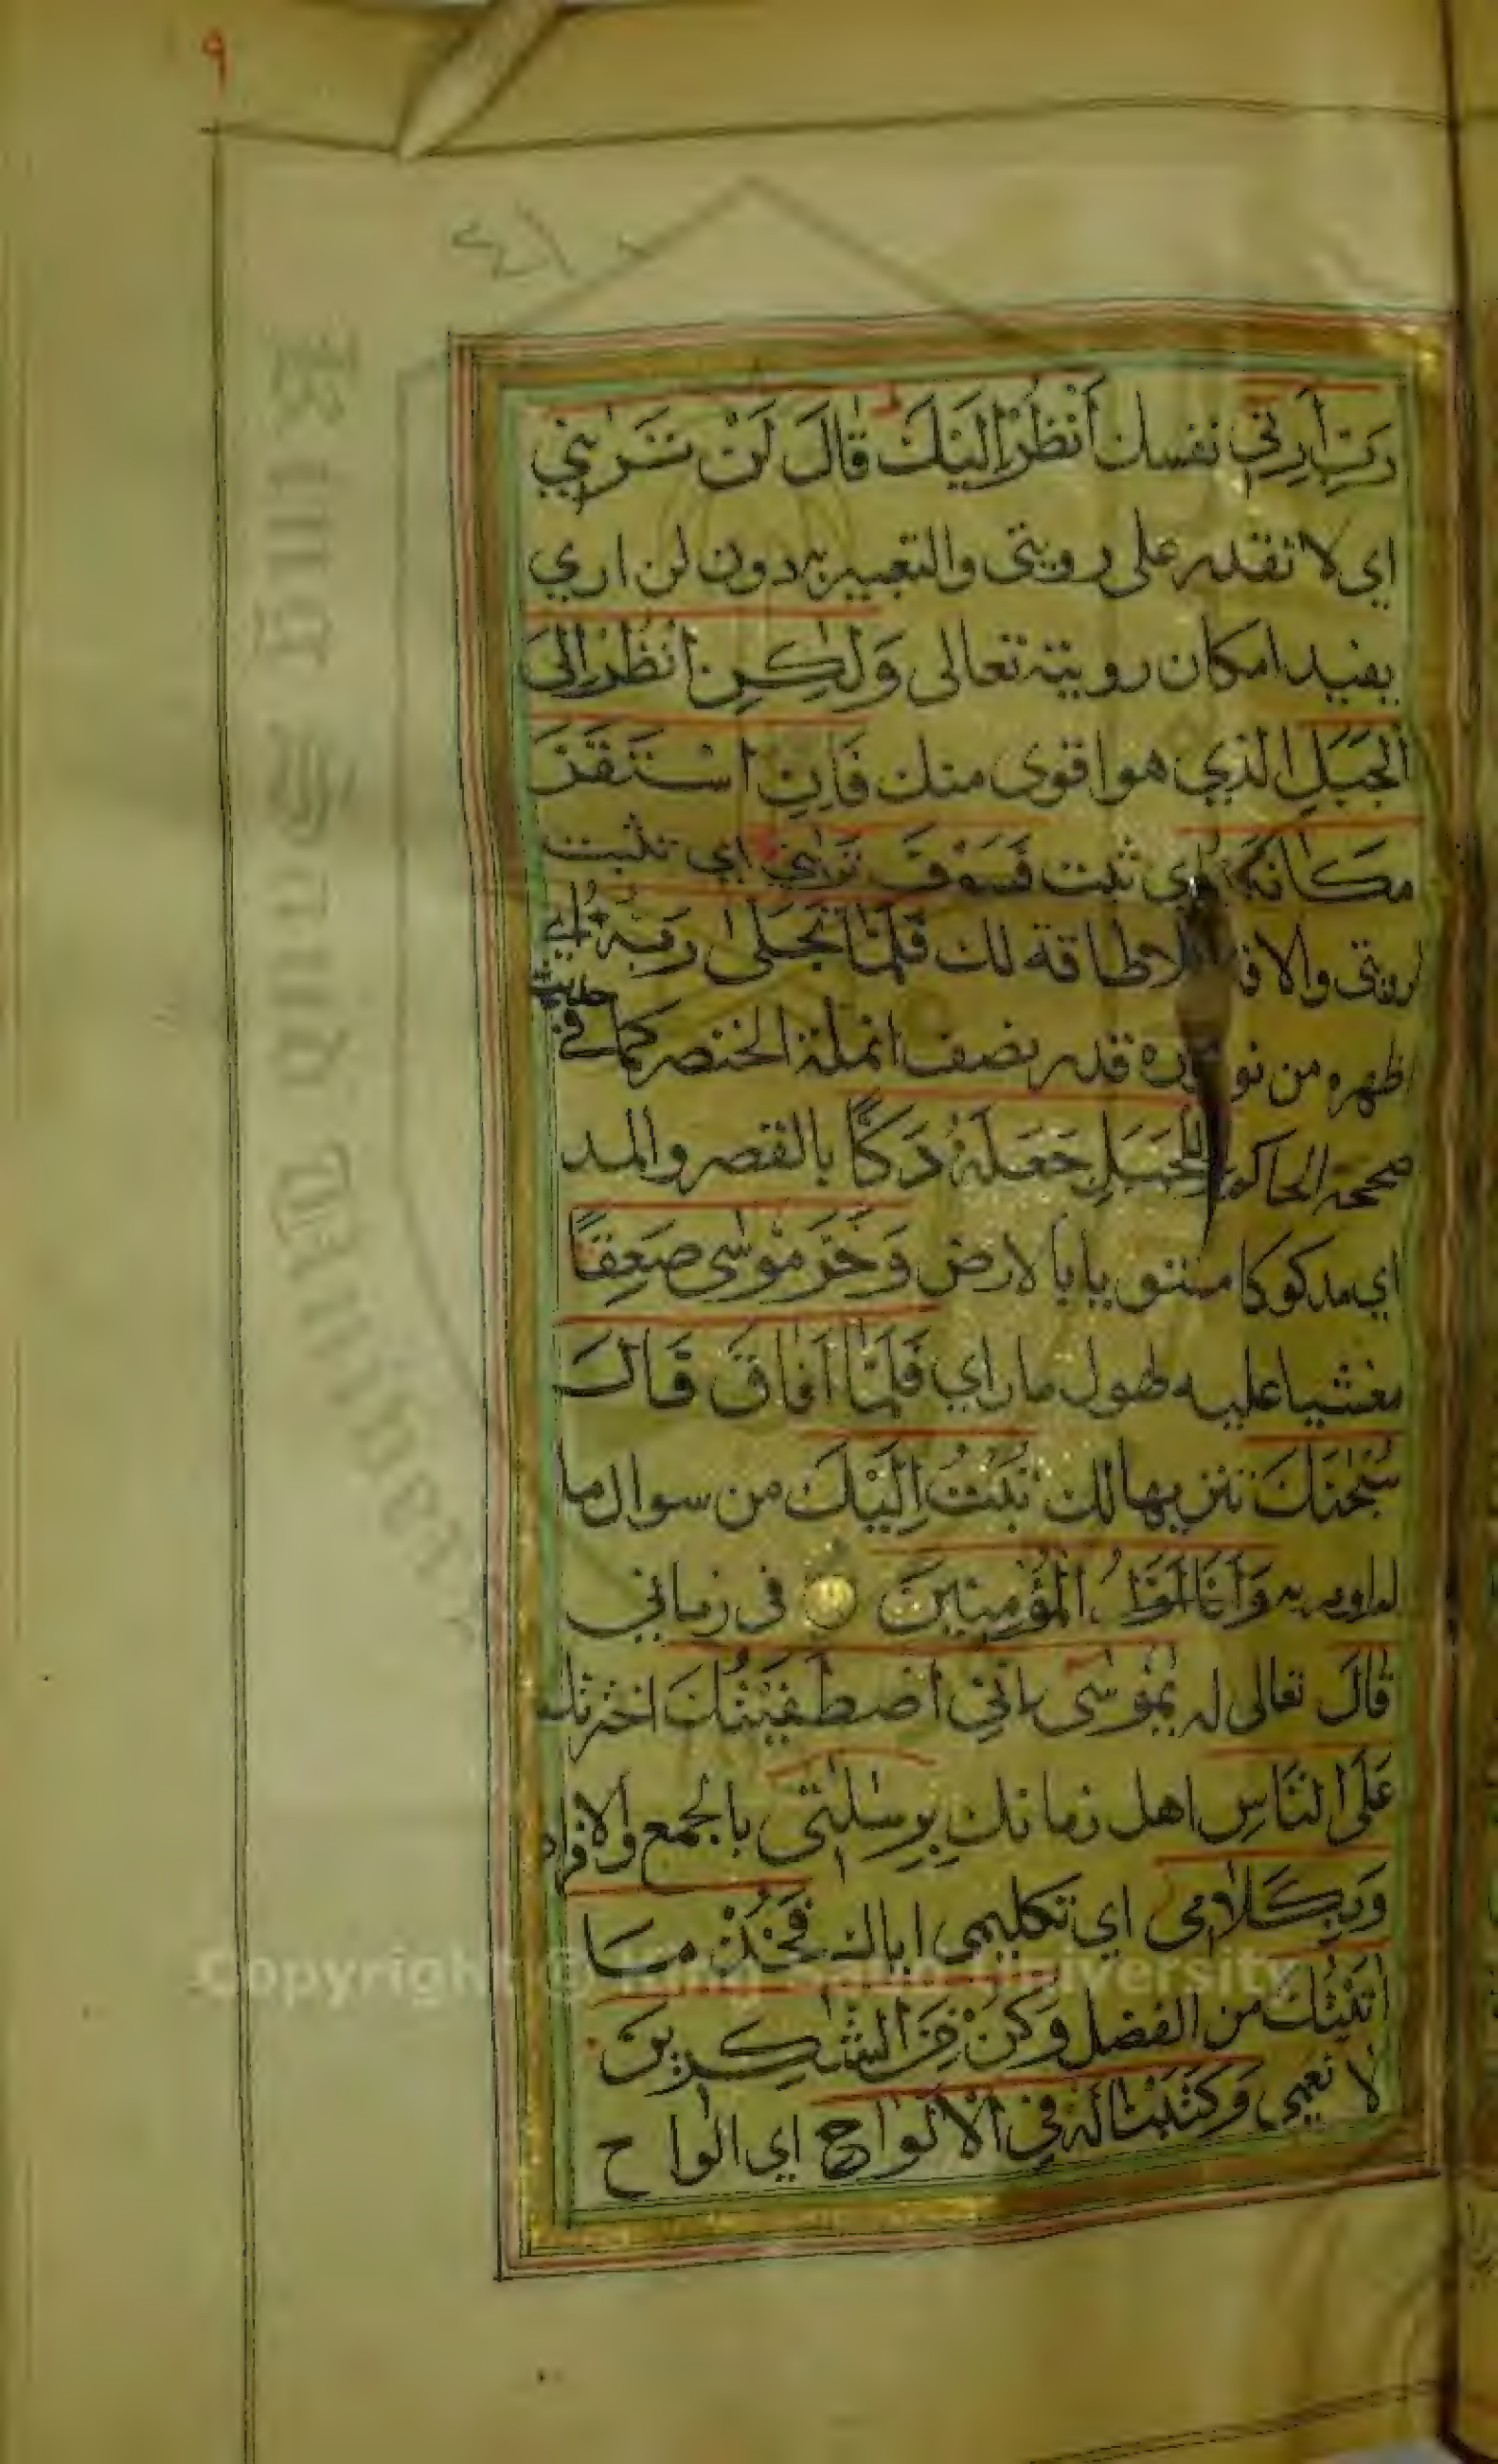 ٩
٤١
رَبِّ اَرِنِي نفسك اَنْظُرْ اِلَيْكَ قَالَ لَنْ تَرٰىنِي
اي لا تقدر على رويتى والتعبير به دون لن اري
يفيد امكان رويته تعالى وَلٰكِنِ انْظُرْ اِلَى
الْجَبَلِ الذي هو اقوى منك فَاِنِ اسْتَقَرَّ
مَكَانَهُ اي ثبت فَسَوْفَ تَرٰىنِي اي تثبت
رويتى والا فلا طاقة لك فَلَمَّا تَجَلّٰى رَبُّهُ اي
ظهر من نوره قدر نصف انملة الخنصر كما في حديث
صححه الحاكم لِلْجَبَلِ جَعَلَهُ دَكًّا بالقصر والمد
اي مدكوكا مستويا بالارض وَخَرَّ مُوسٰى صَعِقًا
مغشيا عليه لهول ما راي فَلَمَّا اَفَاقَ قَالَ
سُبْحٰنَكَ تنزيها لك تُبْتُ اِلَيْكَ من سوال ما
لم اومر به وَاَنَا اَوَّلُ الْمُؤْمِنِينَ في زماني
قَالَ تعالى له يٰمُوسٰى اِنِّي اصْطَفَيْتُكَ اخترتك
عَلَى النَّاسِ اهل زمانك بِرِسٰلٰتِي بالجمع والافراد
وَبِكَلَامِي اي تكليمى اياك فَخُذْ مَا
اٰتَيْتُكَ من الفضل وَكُنْ مِنَ الشّٰكِرِينَ
لا نعمى وَكَتَبْنَا لَهُ فِي الْاَلْوَاحِ اي الواح
King Saud University
Copyright © King Saud University